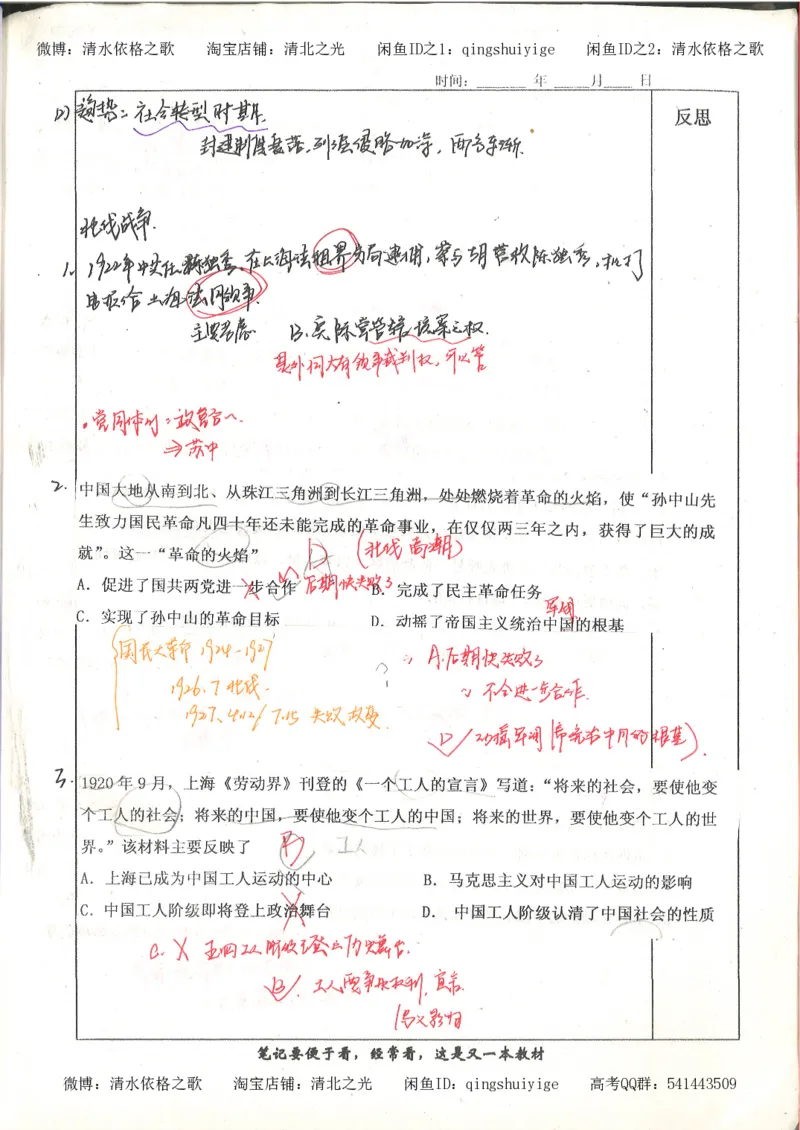 微博：清水依格之歌 淘宝店铺：清北之光 闲鱼ID之1：qingshuiyige 闲鱼ID之2：清水依格之歌
时间：______ 年 ____月____ 日
反思
趋势：社会转型时期
封建制度衰落，列强侵略加深，西方东渐
北伐战争
1. 1922年中共陈独秀，在上海法租界当局逮捕，
主要考虑 B.实际掌管该案之权.
有领事裁判权，
⇒苏中
2. 中国大地从南到北、从珠江三角洲到长江三角洲，处处燃烧着革命的火焰，使“孙中山先
生致力国民革命凡四十年还未能完成的革命事业，在仅仅两三年之内，获得了巨大的成
就”。这一“革命的火焰”
D (北伐高潮)
A. 促进了国共两党进一步合作 后期快失败了 B. 完成了民主革命任务
军阀
C. 实现了孙中山的革命目标 D. 动摇了帝国主义统治中国的根基
国民大革命 1924-1927
A.后期快失败了
1926.7 北伐.
不会进一步合作.
1927、4.12/7.15 失败
D√ 动摇军阀(帝统治中国的根基).
3. 1920 年 9 月，上海《劳动界》刊登的《一个工人的宣言》写道：“将来的社会，要使他变
个工人的社会；将来的中国，要使他变个工人的中国；将来的世界，要使他变个工人的世
界。”该材料主要反映了 B 工人
A. 上海已成为中国工人运动的中心 B. 马克思主义对中国工人运动的影响
C. 中国工人阶级即将登上政治舞台 D. 中国工人阶级认清了中国社会的性质
C. X 五四工人阶级已登上历史舞台.
B√. 工人要争取权利，宣言.
马义影响
笔记要便于看，经常看，这是又一本教材
微博：清水依格之歌 淘宝店铺：清北之光 闲鱼ID：qingshuiyige 高考QQ群：541443509